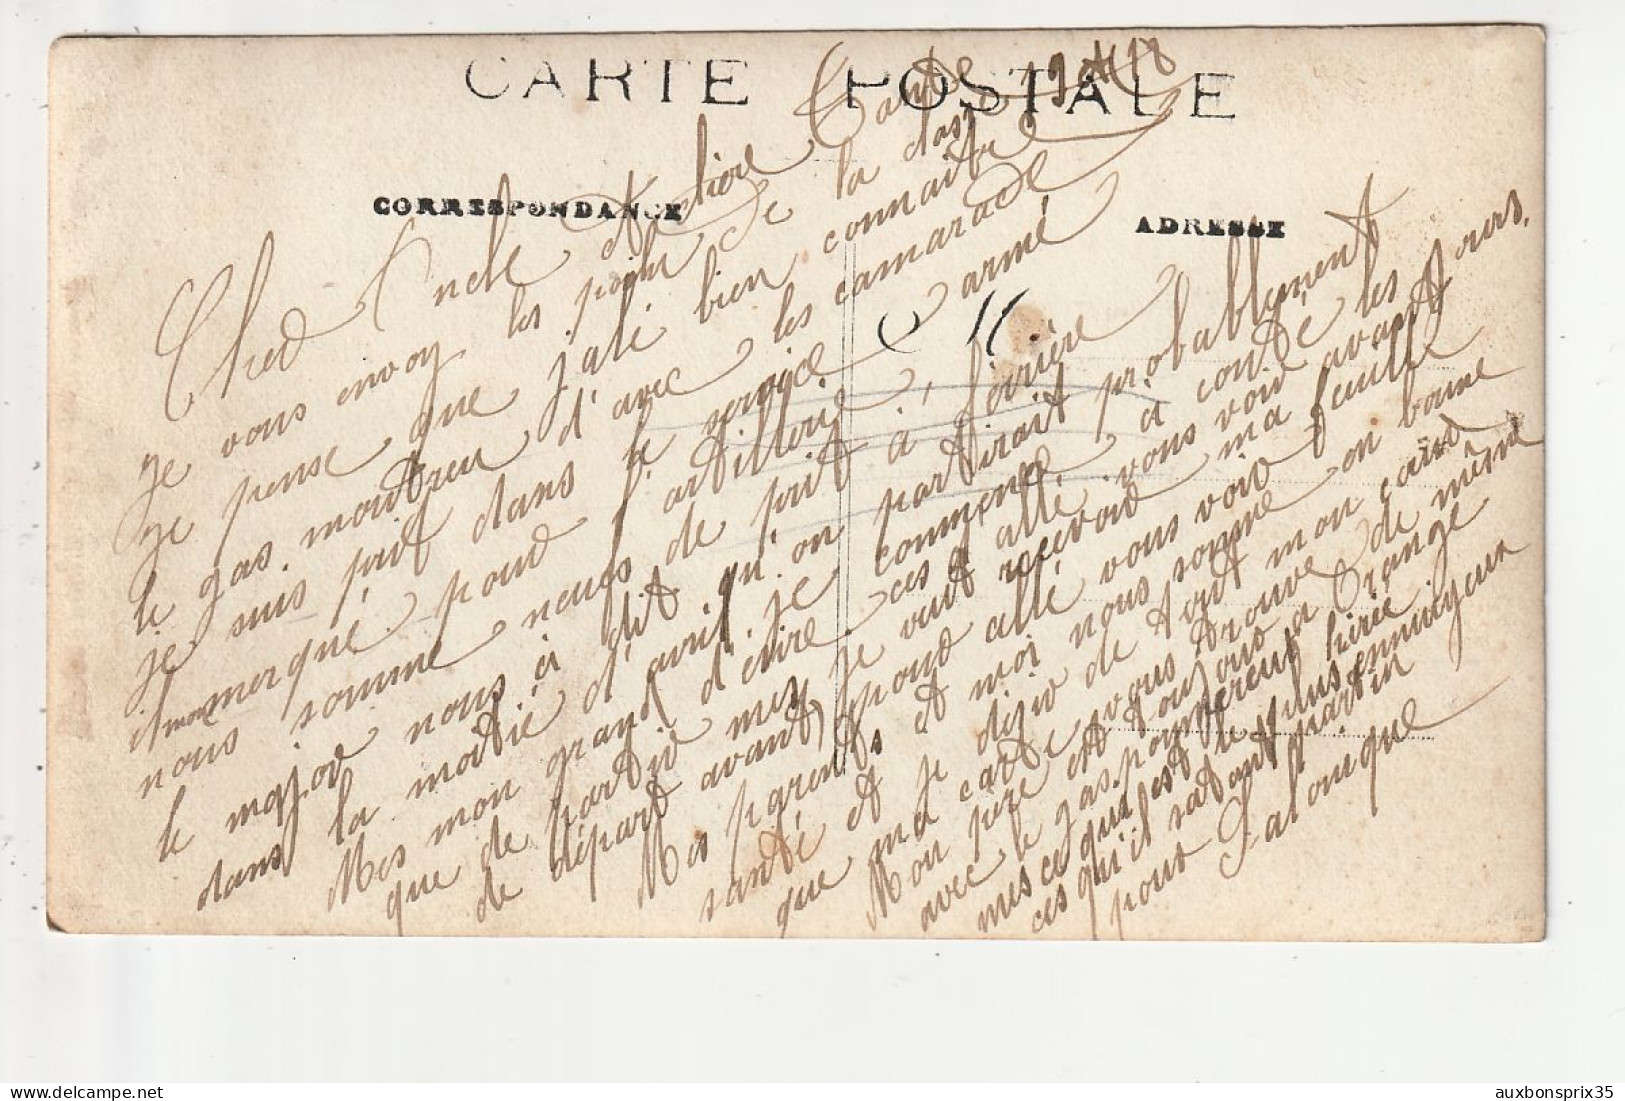 CARTE POSTALE
CORRESPONDANCE
ADRESSE
Cher Oncle et chère Tante
je vous envoy les poilu de la classe 19
je pense que jalé bien connaitre
le gas montreu d'avec les camarade
je suis prit dans le service armé
merqué pour l'artillerie
nous somme neufs de prit à
le major nous à dit qu'on partirait probablement
dans la moitié d'avril. je commence à conté les jours
Mes mon grand d'écrire ces d'allé vous voir avant
que de partir mes je veut recevoir ma feuille
de départ avant pour allé vous voir
Mes parents et moi nous somme en bonne
santé et je désir de tout mon cœur
que ma carte vous trouve de même
Mon père est toujours a Orange
avec le gas
mes ce qui est le plus ennuyeux
ces qu'il
pour Martin
Jalouique
auxbonsprix35